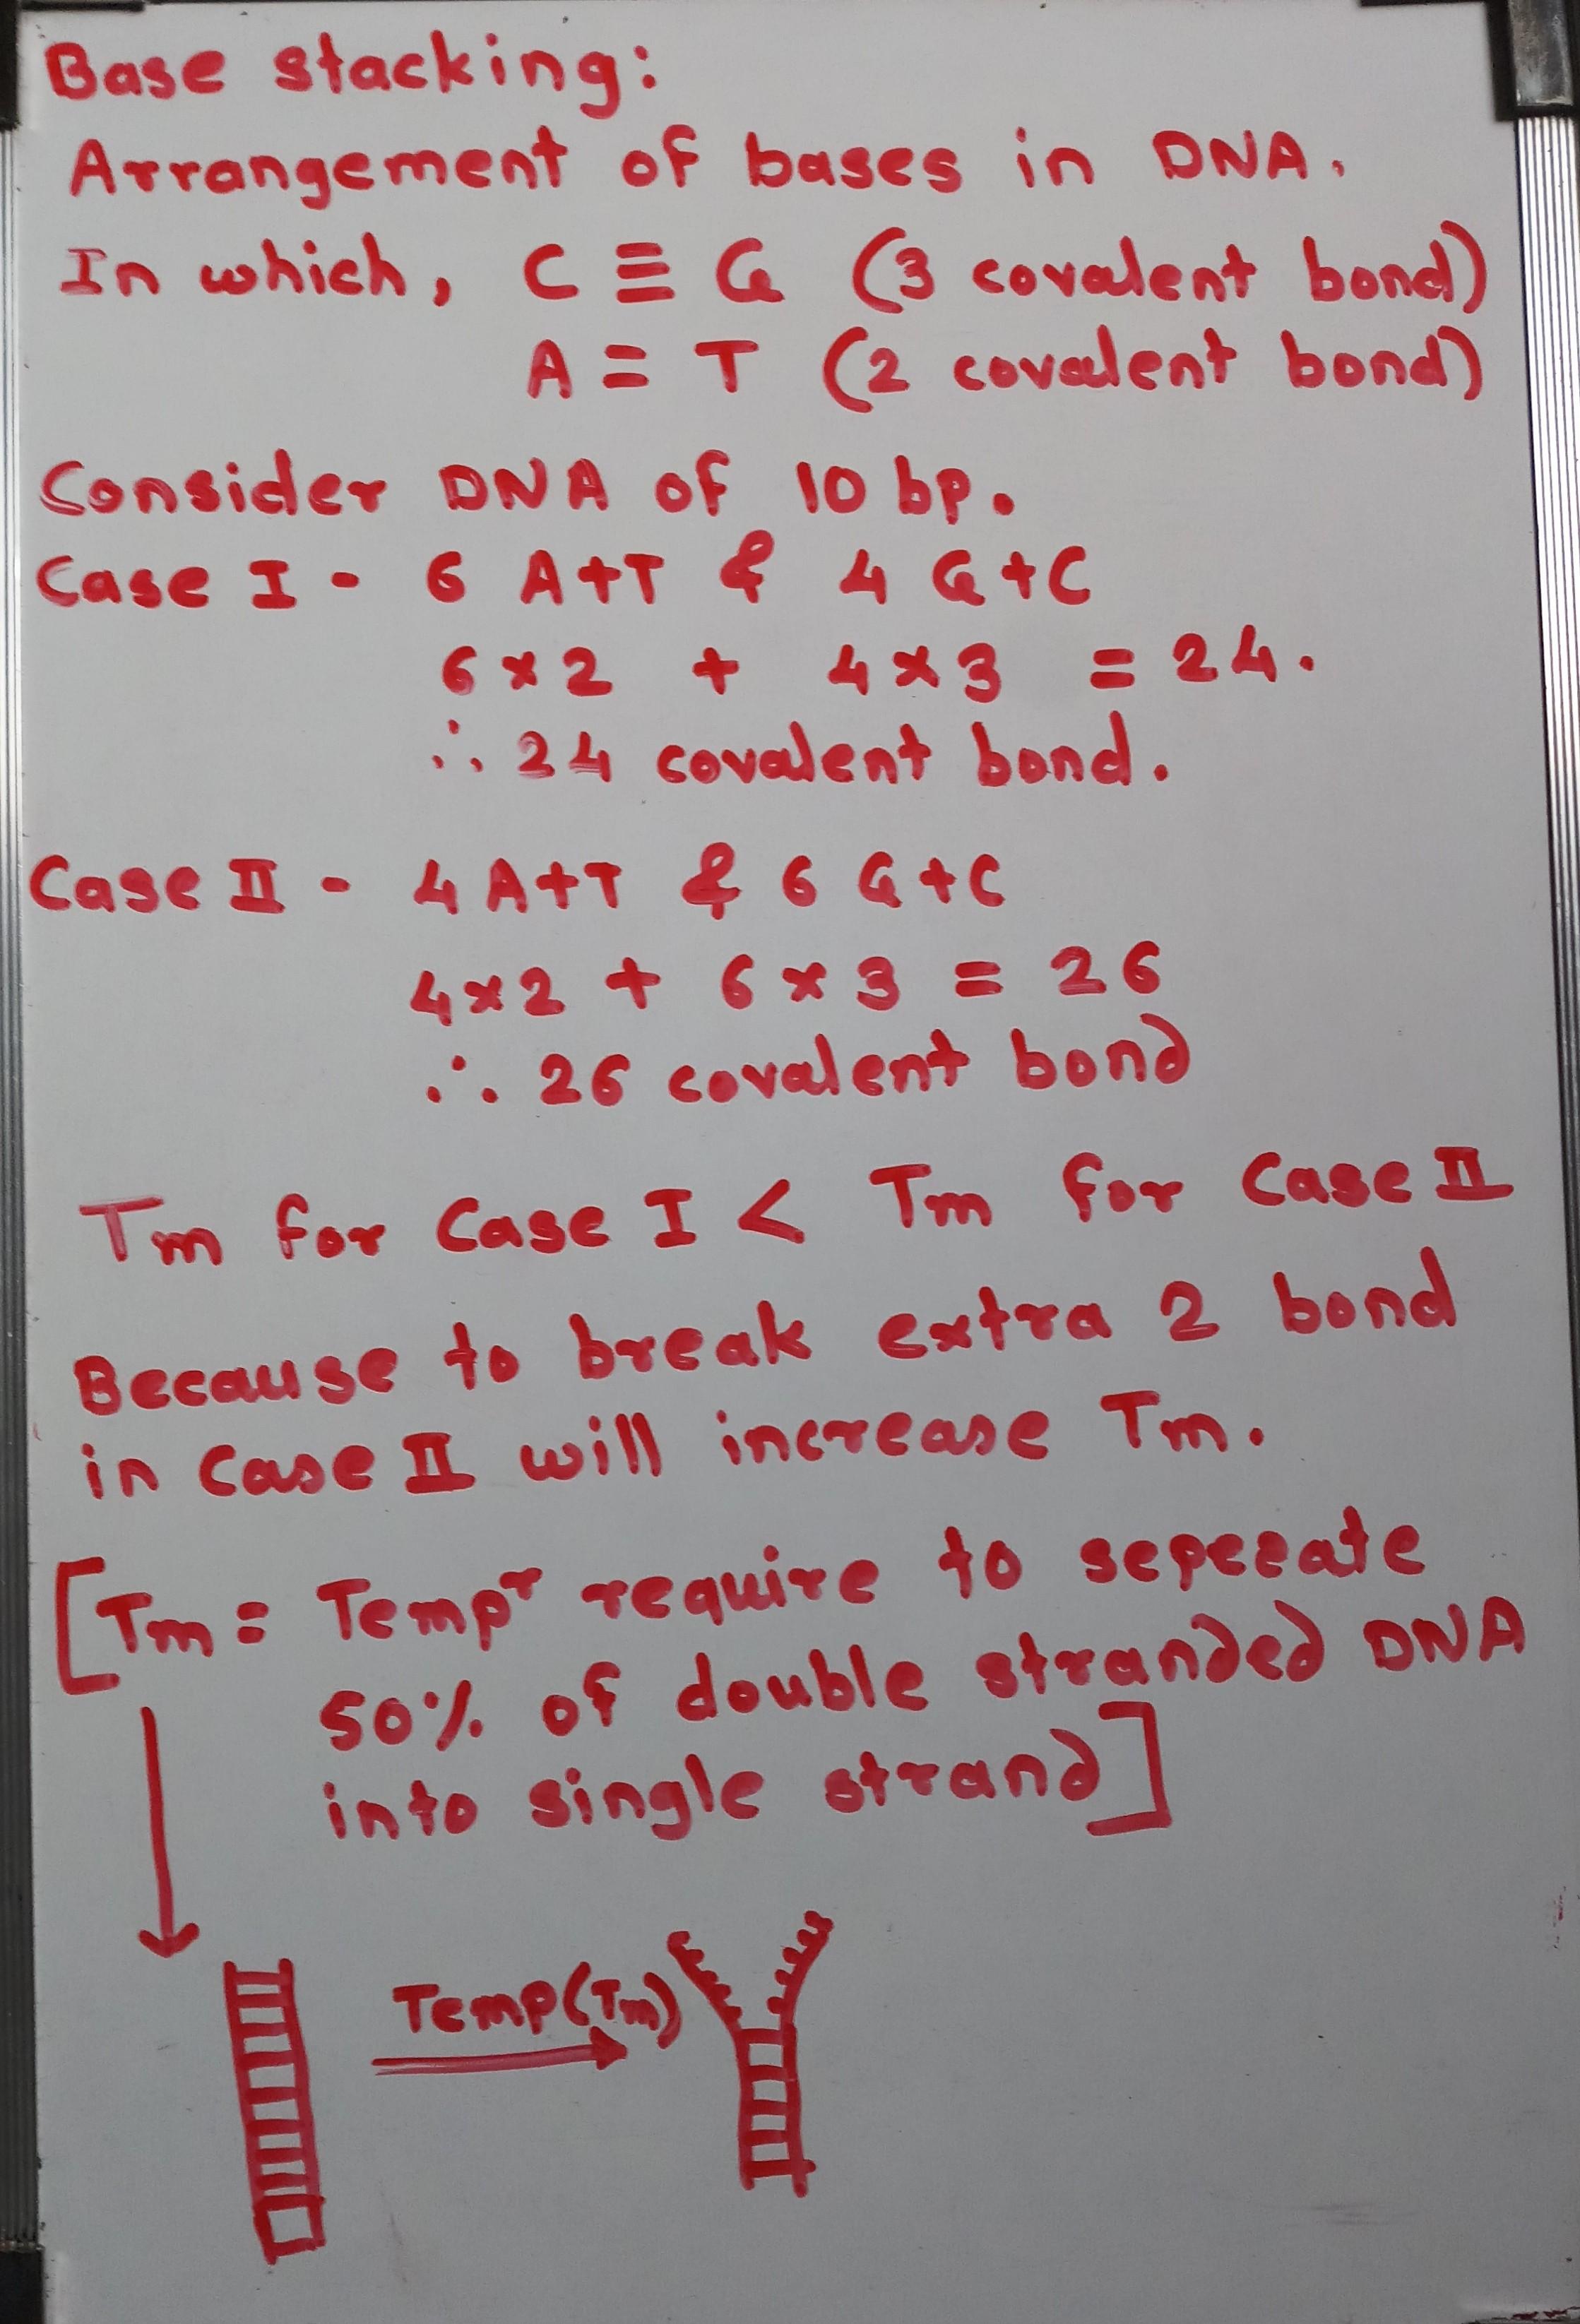 Base stacking:
Arrangement of bases in DNA.
In which, C ≡ G (3 covalent bond)
A = T (2 covalent bond)
Consider DNA of 10 bp.
Case I - 6 A+T & 4 G+C
6 × 2 + 4 × 3 = 24.
∴ 24 covalent bond.
Case II - 4 A+T & 6 G+C
4×2 + 6 × 3 = 26
∴ 26 covalent bond
Tm for Case I < Tm for Case II
Because to break extra 2 bond
in Case II will increase Tm.
[Tm = Tempʳ require to seperate
50% of double stranded DNA
into single strand]
Temp(Tm)